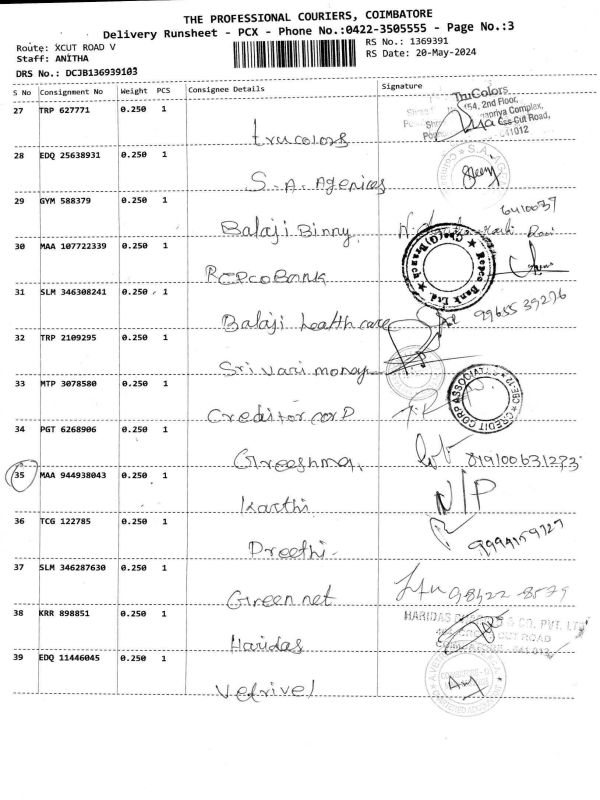 THE PROFESSIONAL COURIERS, COIMBATORE
Delivery Runsheet - PCX - Phone No.:0422-3505555 - Page No.:3
Route: XCUT ROAD V
RS No.: 1369391
Staff: ANITHA
RS Date: 20-May-2024
DRS No.: DCJB136939103
S No Consignment No Weight PCS Consignee Details Signature
27 TRP 627771 0.250 1 trucolors
TruColors
154, 2nd Floor,
Complex,
Cut Road,
641012
28 EDQ 25638931 0.250 1 S.A. Agenices
29 GYM 588379 0.250 1 Balaji Binny
30 MAA 107722339 0.250 1 Repco Bank
Repco Bank Ltd.
31 SLM 346308241 0.250 1 Balaji healthcare
32 TRP 2109295 0.250 1 Srivari money
33 MTP 3078580 0.250 1 Creditor corp
CREDIT CORP ASSOCIATES
34 PGT 6268906 0.250 1 Greeshma
35 MAA 944938043 0.250 1 Karthi N/P
36 TCG 122785 0.250 1 Preethi
37 SLM 346287630 0.250 1 Greennet
38 KRR 898851 0.250 1 Haridas
HARIDAS & CO. PVT. LTD
CUT ROAD
39 EDQ 11446045 0.250 1 Vetrivel